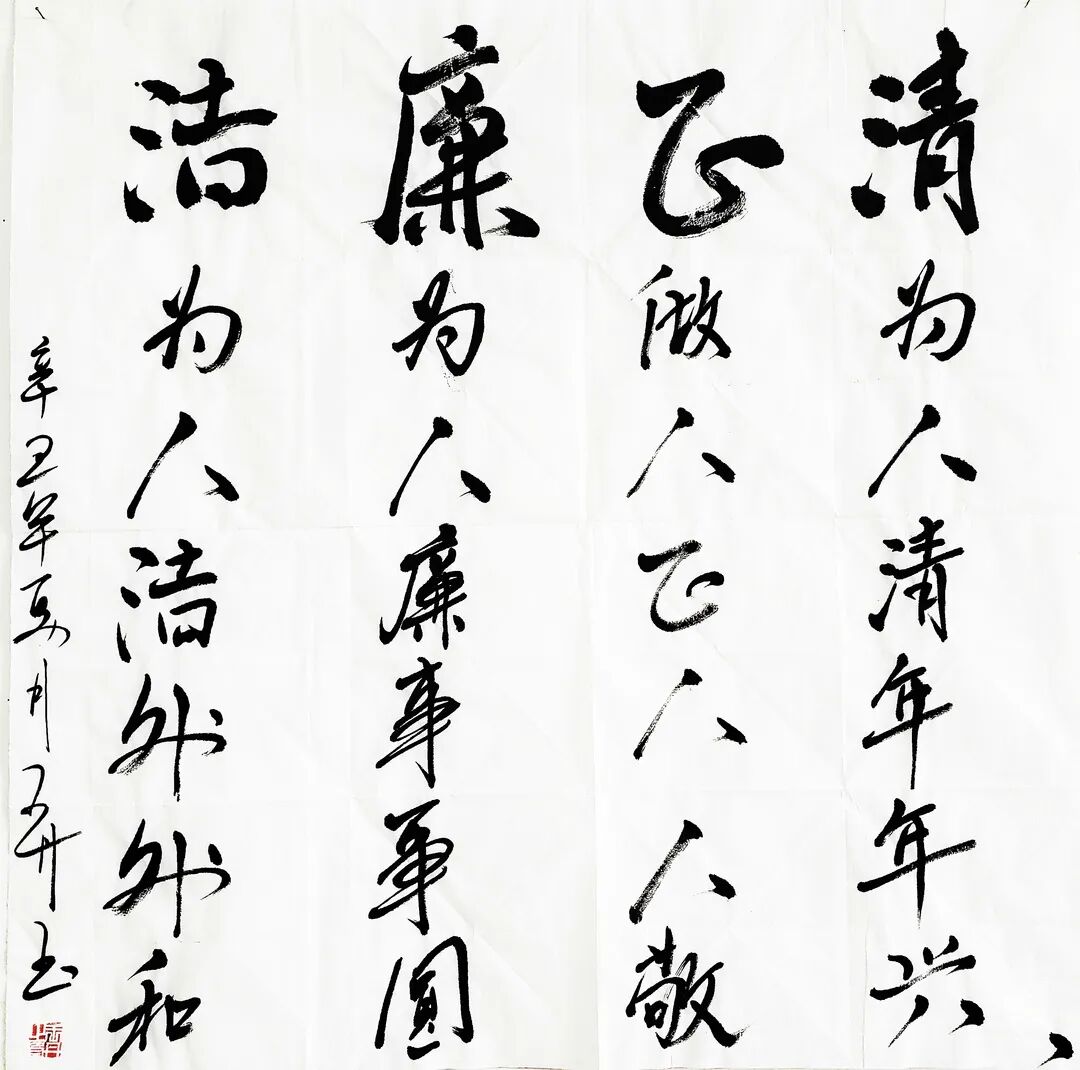 清为人清年年兴、
正做人正人人敬
廉为人廉事事圆
洁为人洁外外和
辛丑年夏月